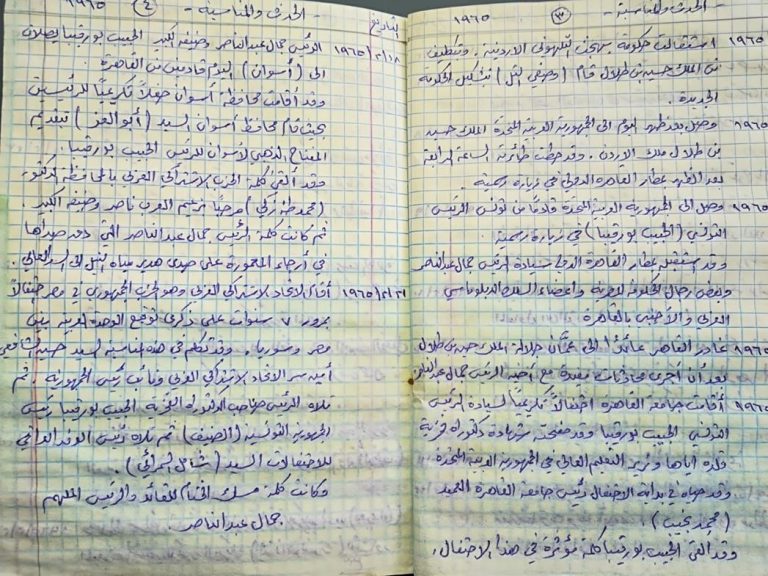 - الحدث والمناسبة - (٣) ١٩٦٥
١٩٦٥ استقالت حكومة بهجت التلهوني الاردنية . وبتكليف
من الملك حسين بن طلال قام (وصفي التل) بتشكيل الحكومة
الجديدة .
١٩٦٥ وصل بعد ظهر اليوم الى الجمهورية العربية المتحدة الملك حسين
بن طلال ملك الاردن . وقد حطت طائرته الساعة الرابعة
بعد الظهر بمطار القاهرة الدولي في زيارة رسمية
١٩٦٥ وصل الى الجمهورية العربية المتحدة قادمًا من تونس الرئيس
التونسي (الحبيب بورقيبا) في زيارة رسمية .
وقد استقبله بمطار القاهرة الدولي سيادة الرئيس جمال عبدالناصر
وبعض رجال الحكومة المصرية واعضاء السلك الدبلوماسي
العربي والأجنبي بالقاهرة
١٩٦٥ غادر القاهرة عائدًا الى عمَّان جلالة الملك حسين بن طلال
بعد أن أجرى محادثات مفيدة مع أخيه الرئيس جمال عبدالناصر
١٩٦٥ أقامت جامعة القاهرة احتفالاً تكريمياً لسيادة الرئيس
التونسي الحبيب بورقيبا وقد منحته شهادة دكتوراه فخرية
قلده أياها وزير التعليم العالي في الجمهورية العربية المتحدة
وقد حياه في بداية الاحتفال رئيس جامعة القاهرة العميد
(محمد نجيب) .
وقد القى الحبيب بورقيبا كلمة مؤثرة في هذا الاحتفال .
التاريخ - الحدث والمناسبة - (٤) ١٩٦٥
١٩٦٥/٢/١٨ الرئيس جمال عبدالناصر وضيفه الكبير الحبيب بورقيبا يصلان
الى (أسوان) اليوم قادمين من القاهرة .
وقد أقامت محافظة أسوان حفلاً تكريمياً للرئيسين
بحيث قام محافظ أسوان السيد (أبو العز) بتقديم
المفتاح الذهبي لأسوان للرئيس الحبيب بورقيبا .
وقد ألقى كلمة الحزب الاشتراكي العربي بالمحافظة الدكتور
(محمد طه زكي) مرحبًا بزعيم العرب ناصر وضيفه الكبير .
ثم كانت كلمة الرئيس جمال عبدالناصر التي دوى صداها
في أرجاء المعمورة على صدى هدير مياه النيل الى السد العالي .
١٩٦٥/٢/٢١ أقام الاتحاد الاشتراكي العربي وهو الحزب الجمهوري في مصر احتفالاً
بمرور ٧ سنوات على ذكرى توقيع الوحدة العربية بين
مصر وسوريا . وقد تكلم في هذه المناسبة السيد حسين الشافعي
أمين سر الاتحاد الاشتراكي العربي ونائب رئيس الجمهورية . ثم
تلاه الرئيس صاحب الدكتوراه الفخرية الحبيب بورقيبا رئيس
الجمهورية التونسية (الضيف) ثم تلاه رئيس الوفد العراقي
للاحتفالات السيد (شامل السامرائي) .
وكانت كلمة مسك الختام للقائد والرئيس الملهم
جمال عبدالناصر .